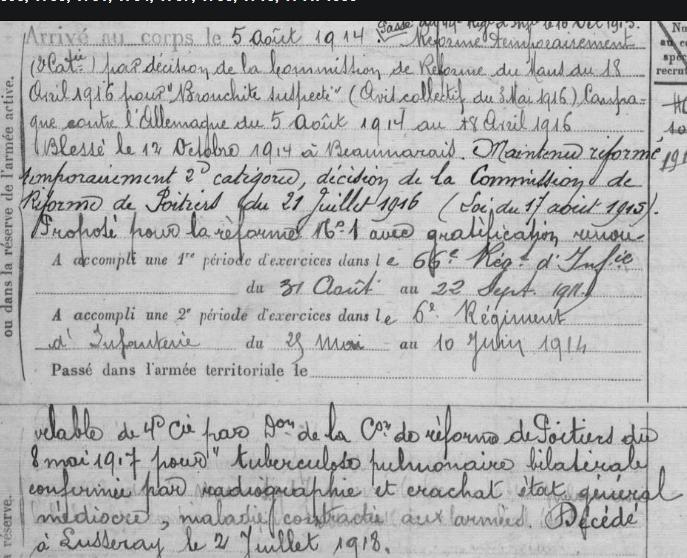 Passé au 44e Rég. d'Inf. le 16 Déc 1915.
Arrivé au corps le 5 août 1914. Réformé temporairement
(2e Catie) par décision de la Commission de Réforme du Mans du 18
Avril 1916 pour "Bronchite suspecte" (Avis collectif du 3 Mai 1916) Campa-
gne contre l'Allemagne du 5 Août 1914 au 18 Avril 1916
Blessé le 12 Octobre 1914 à Beaumarais. Maintenu réformé
temporairement 2e catégorie, décision de la Commission de
Réforme de Poitiers du 21 Juillet 1916 (Loi du 17 août 1915).
Proposé pour la réforme No 1 avec gratification renou-
A accompli une 1re période d'exercices dans le 66e Régt d'Infie
du 31 Août au 22 Sept.
A accompli une 2e période d'exercices dans le 6e Régiment
d'Infanterie du 25 Mai au 10 Juin 1914
Passé dans l'armée territoriale le
velable de 4e Cie par Don de la Con de réforme de Poitiers du
8 mai 1917 pour "tuberculose pulmonaire bilatérale
confirmée par radiographie et crachat état général
médiocre, maladie contractée aux armées. Décédé
à Lusseray le 2 Juillet 1918.
ou dans la réserve de l'armée active.
réserve.